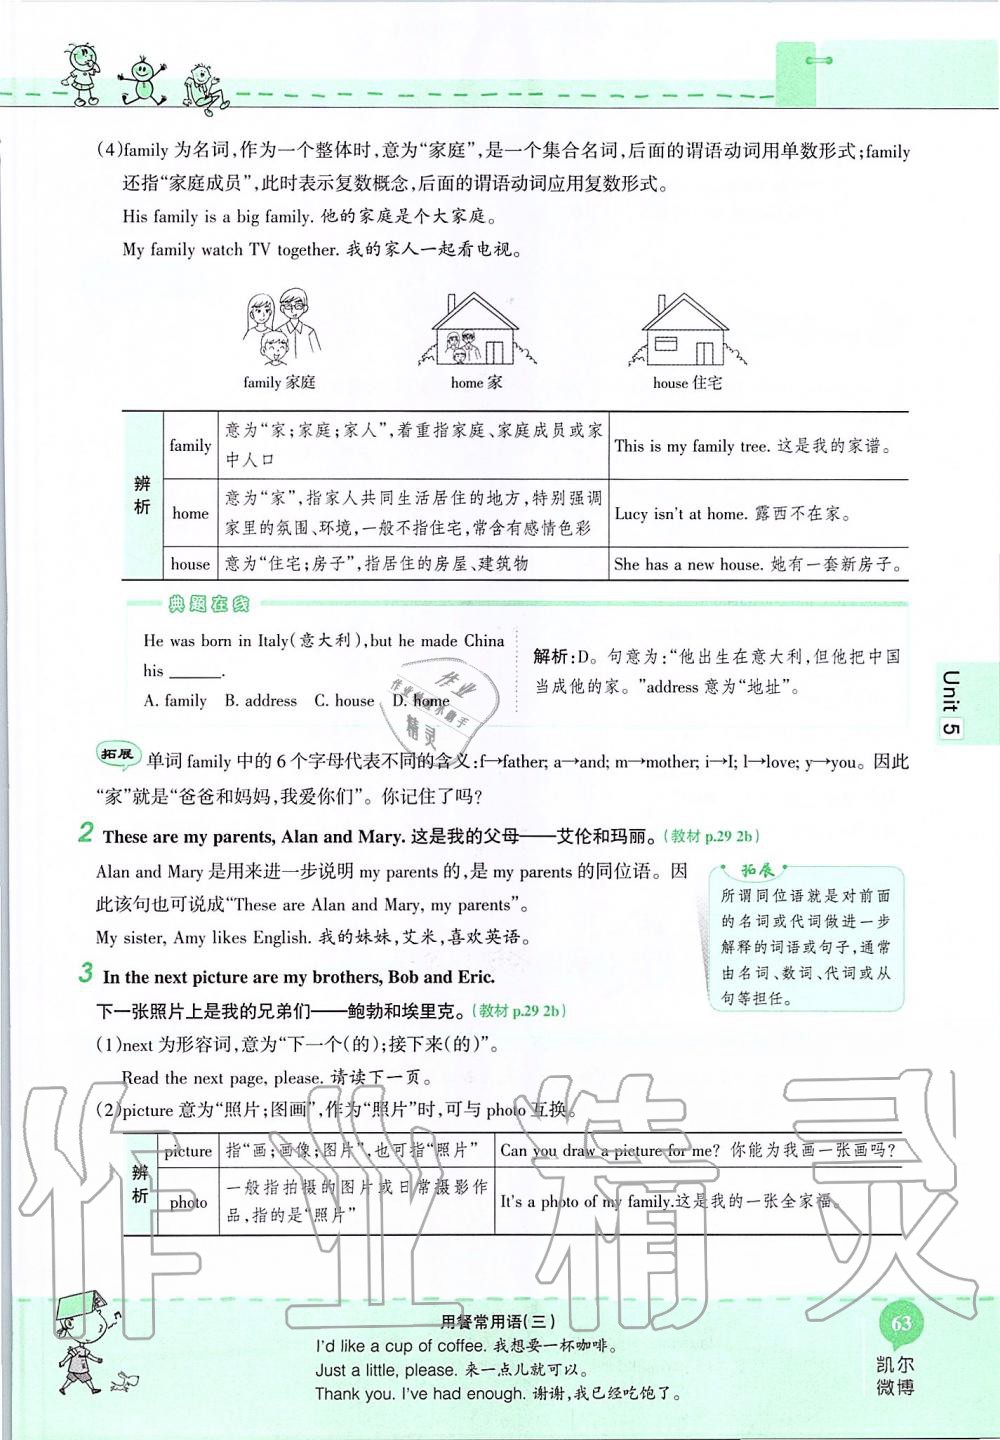 (4)family 为名词,作为一个整体时,意为“家庭”,是一个集合名词,后面的谓语动词用单数形式;family
还指“家庭成员”,此时表示复数概念,后面的谓语动词应用复数形式。
His family is a big family. 他的家庭是个大家庭。
My family watch TV together. 我的家人一起看电视。
family 家庭
home 家
house 住宅
辨析
family
意为“家;家庭;家人”,着重指家庭、家庭成员或家
中人口
This is my family tree. 这是我的家谱。
home
意为“家”,指家人共同生活居住的地方,特别强调
家里的氛围、环境,一般不指住宅,常含有感情色彩
Lucy isn't at home. 露西不在家。
house
意为“住宅;房子”,指居住的房屋、建筑物
She has a new house. 她有一套新房子。
典题在线
He was born in Italy(意大利),but he made China
his ______.
A. family B. address C. house D. home
解析:D。句意为:“他出生在意大利,但他把中国
当成他的家。”address 意为“地址”。
作业
作业的金水助手
精灵
Unit 5
拓展 单词 family 中的 6 个字母代表不同的含义:f→father; a→and; m→mother; i→I; l→love; y→you。因此
“家”就是“爸爸和妈妈,我爱你们”。你记住了吗?
2 These are my parents, Alan and Mary. 这是我的父母——艾伦和玛丽。(教材 p.29 2b)
Alan and Mary 是用来进一步说明 my parents 的,是 my parents 的同位语。因
此该句也可说成“These are Alan and Mary, my parents”。
My sister, Amy likes English. 我的妹妹,艾米,喜欢英语。
拓展
所谓同位语就是对前面
的名词或代词做进一步
解释的词语或句子,通常
由名词、数词、代词或从
句等担任。
3 In the next picture are my brothers, Bob and Eric.
下一张照片上是我的兄弟们——鲍勃和埃里克。(教材 p.29 2b)
(1)next 为形容词,意为“下一个(的);接下来(的)”。
Read the next page, please. 请读下一页。
(2)picture 意为“照片;图画”,作为“照片”时,可与 photo 互换。
辨析
picture
指“画;画像;图片”,也可指“照片”
Can you draw a picture for me? 你能为我画一张画吗?
photo
一般指拍摄的图片或日常摄影作
品,指的是“照片”
It's a photo of my family.这是我的一张全家福。
作业精灵
用餐常用语(三)
I'd like a cup of coffee. 我想要一杯咖啡。
Just a little, please. 来一点儿就可以。
Thank you. I've had enough. 谢谢,我已经吃饱了。
63
凯尔
微博